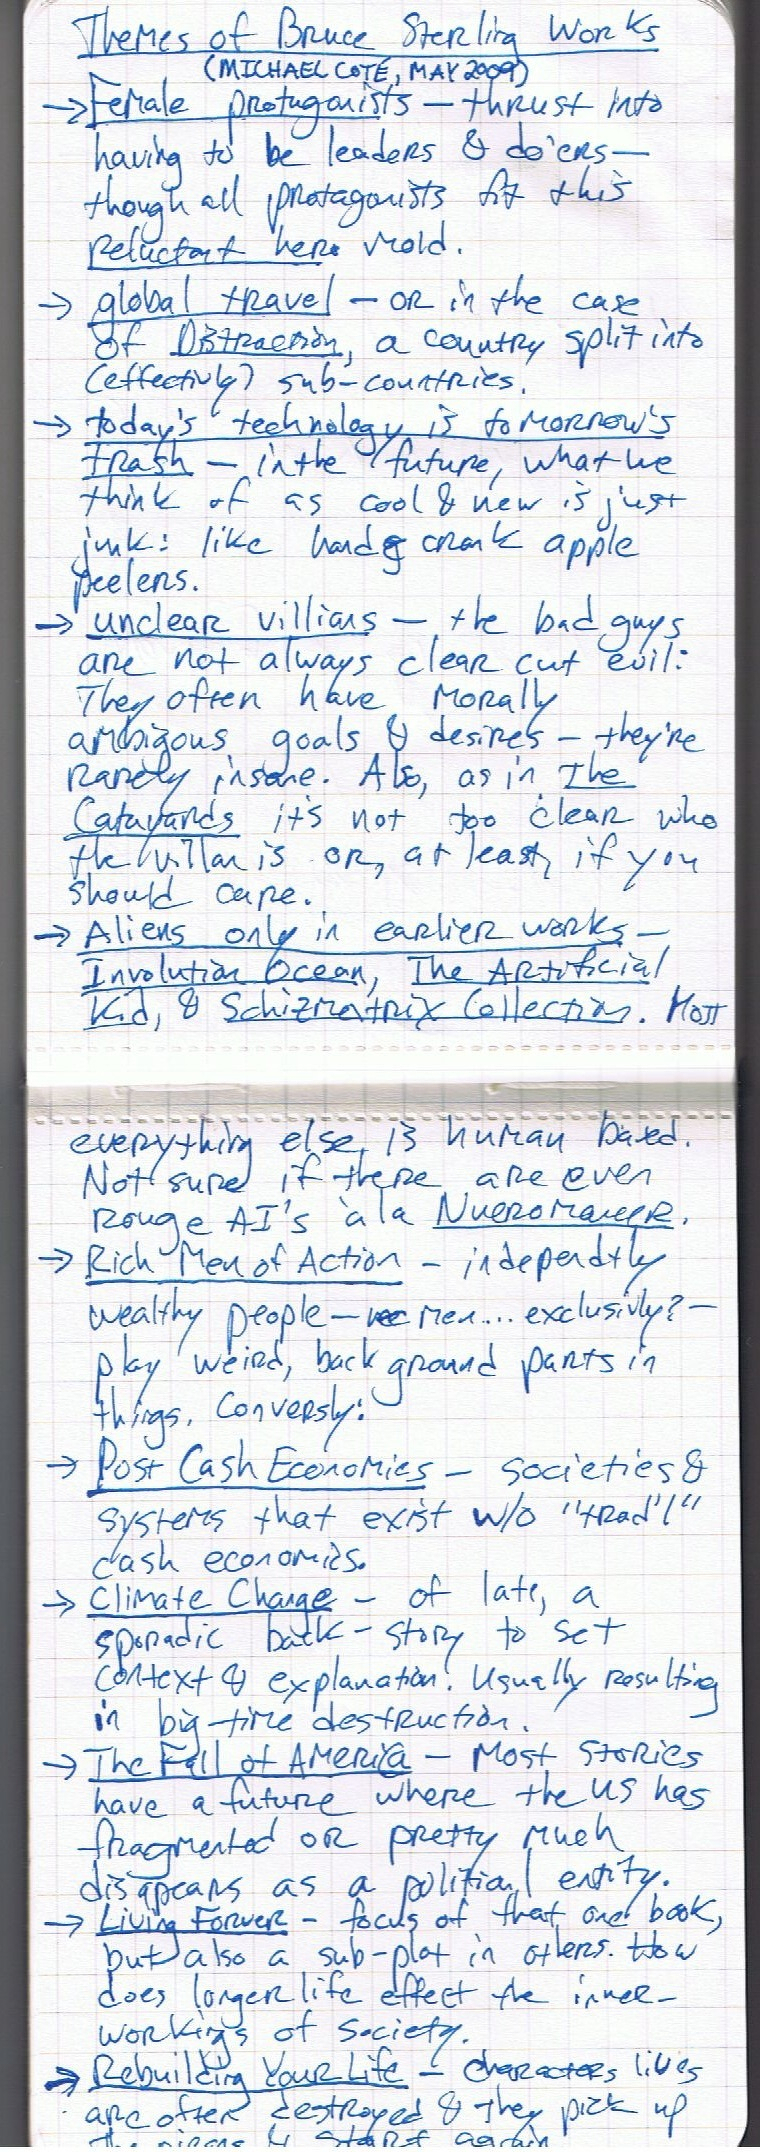 Themes of Bruce Sterling Works
(MICHAEL COTÉ, MAY 2009)
→ Female protagonists — thrust into
having to be leaders & do'ers —
though all protagonists fit this
reluctant hero mold.
→ global travel — or in the case
of Distraction, a country split into
(effectivly) sub-countries.
→ today's technology is tomorrow's
trash — in the future, what we
think of as cool & new is just
junk: like hand crank apple
peelers.
→ unclear villians — the bad guys
are not always clear cut evil:
They often have morally
ambigous goals & desires — they're
rarely insane. Also, as in The
Catayards it's not too clear who
the villan is or, at least, if you
should care.
→ Aliens only in earlier works —
Involution Ocean, The Artificial
Kid, & Schizmatrix Collection. Most
everything else is human based.
Not sure if there are even
rouge AI's 'a la Nueromancer.
→ Rich Men of Action — independtly
wealthy people — men... exclusivly? —
play weird, back ground parts in
things. Conversly:
→ Post Cash Economies — societies &
systems that exist w/o "trad'l"
cash economics.
→ Climate Change — of late, a
sporadic back-story to set
context & explanation. Usually resulting
in big-time destruction.
→ The Fall of America — Most stories
have a future where the US has
fragmented or pretty much
disapears as a political entity.
→ Living Forver — focus of that one book,
but also a sub-plot in others. How
does longer life effect the inner-
workings of society.
→ Rebuilding Your Life — characters lives
are often destroyed & they pick up
the pieces & start again